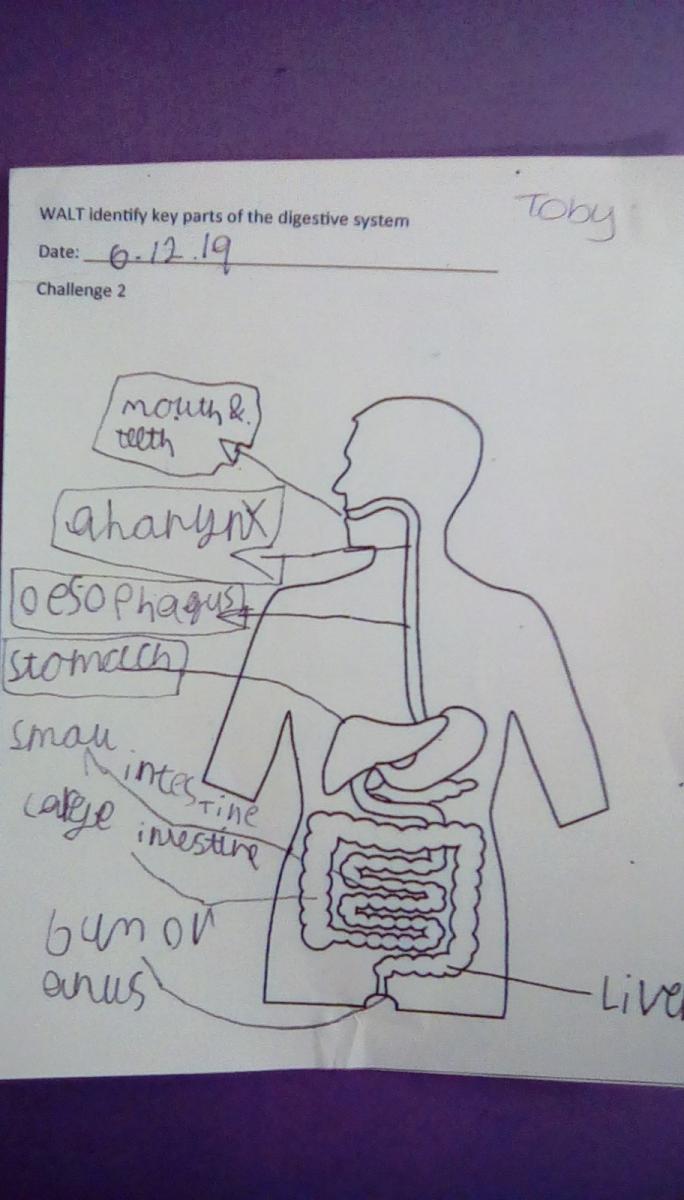 Toby
WALT identify key parts of the digestive system
Date: 6.12.19
Challenge 2
mouth &
teeth
aharynx
oesophagus
stomach
small
intestine
large
intestine
bum or
anus
Live